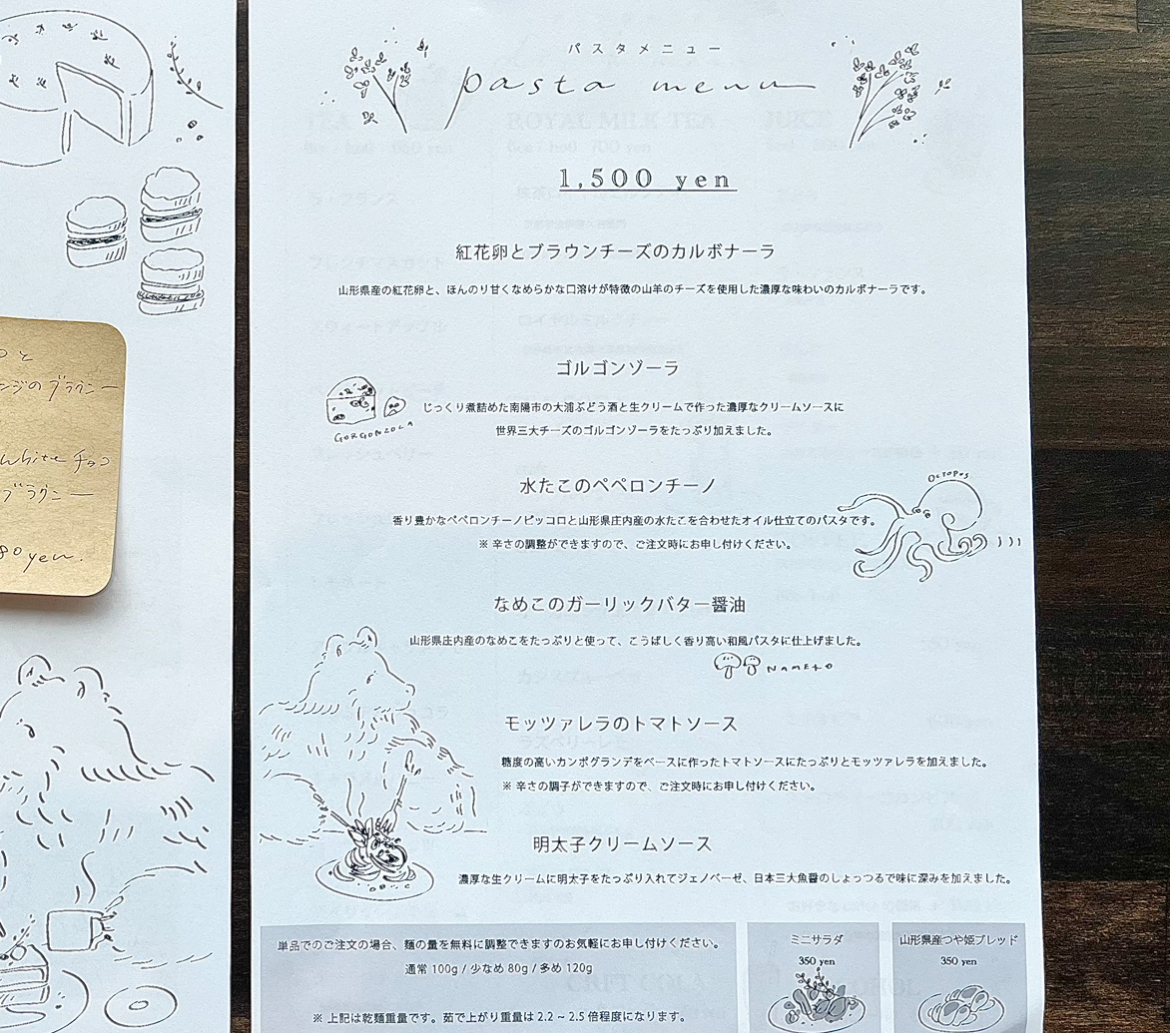 パスタメニュー
pasta menu
1,500 yen
紅花卵とブラウンチーズのカルボナーラ
山形県産の紅花卵と、ほんのり甘くなめらかな口溶けが特徴の山羊のチーズを使用した濃厚な味わいのカルボナーラです。
ゴルゴンゾーラ
GORGONZOLA
じっくり煮詰めた南陽市の大浦ぶどう酒と生クリームで作った濃厚なクリームソースに
世界三大チーズのゴルゴンゾーラをたっぷり加えました。
水たこのペペロンチーノ
Octopus
香り豊かなペペロンチーノピッコロと山形県庄内産の水たこを合わせたオイル仕立てのパスタです。
※ 辛さの調整ができますので、ご注文時にお申し付けください。
なめこのガーリックバター醤油
山形県庄内産のなめこをたっぷりと使って、こうばしく香り高い和風パスタに仕上げました。
NAMEKO
モッツァレラのトマトソース
糖度の高いカンポグランデをベースに作ったトマトソースにたっぷりとモッツァレラを加えました。
※ 辛さの調子ができますので、ご注文時にお申し付けください。
明太子クリームソース
濃厚な生クリームに明太子をたっぷり入れてジェノベーゼ、日本三大魚醤のしょっつるで味に深みを加えました。
単品でのご注文の場合、麺の量を無料に調整できますのお気軽にお申し付けください。
通常 100g / 少なめ 80g / 多め 120g
※ 上記は乾麺重量です。茹で上がり重量は 2.2 ~ 2.5 倍程度になります。
ミニサラダ
350 yen
山形県産つや姫ブレッド
350 yen
と
ンジのブラウニー
white チョコ
ブラウニー
80 yen.